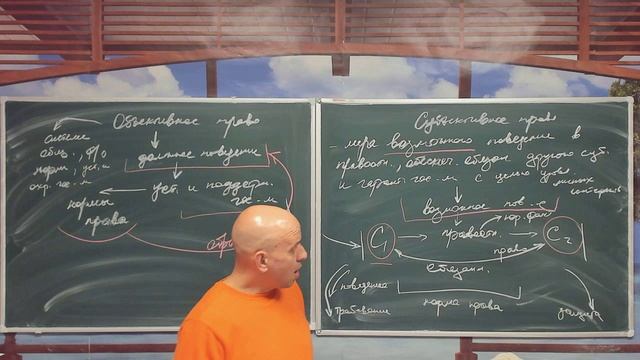 Объективное право
система
общ., ф/о
норм, уст. и
охр. гос-м
должное поведение
уст. и поддерж.
гос-м
нормы
права
Субъективное право
- мера возможного поведения в
правоотн., обеспеч. обязан. другого суб.
и гарант. гос-м с целью удов.
личных
интересов
возможное пов-е
юр. факт
C1 правоотн. C2
право
обязанн.
поведение
требование
норма права
защита